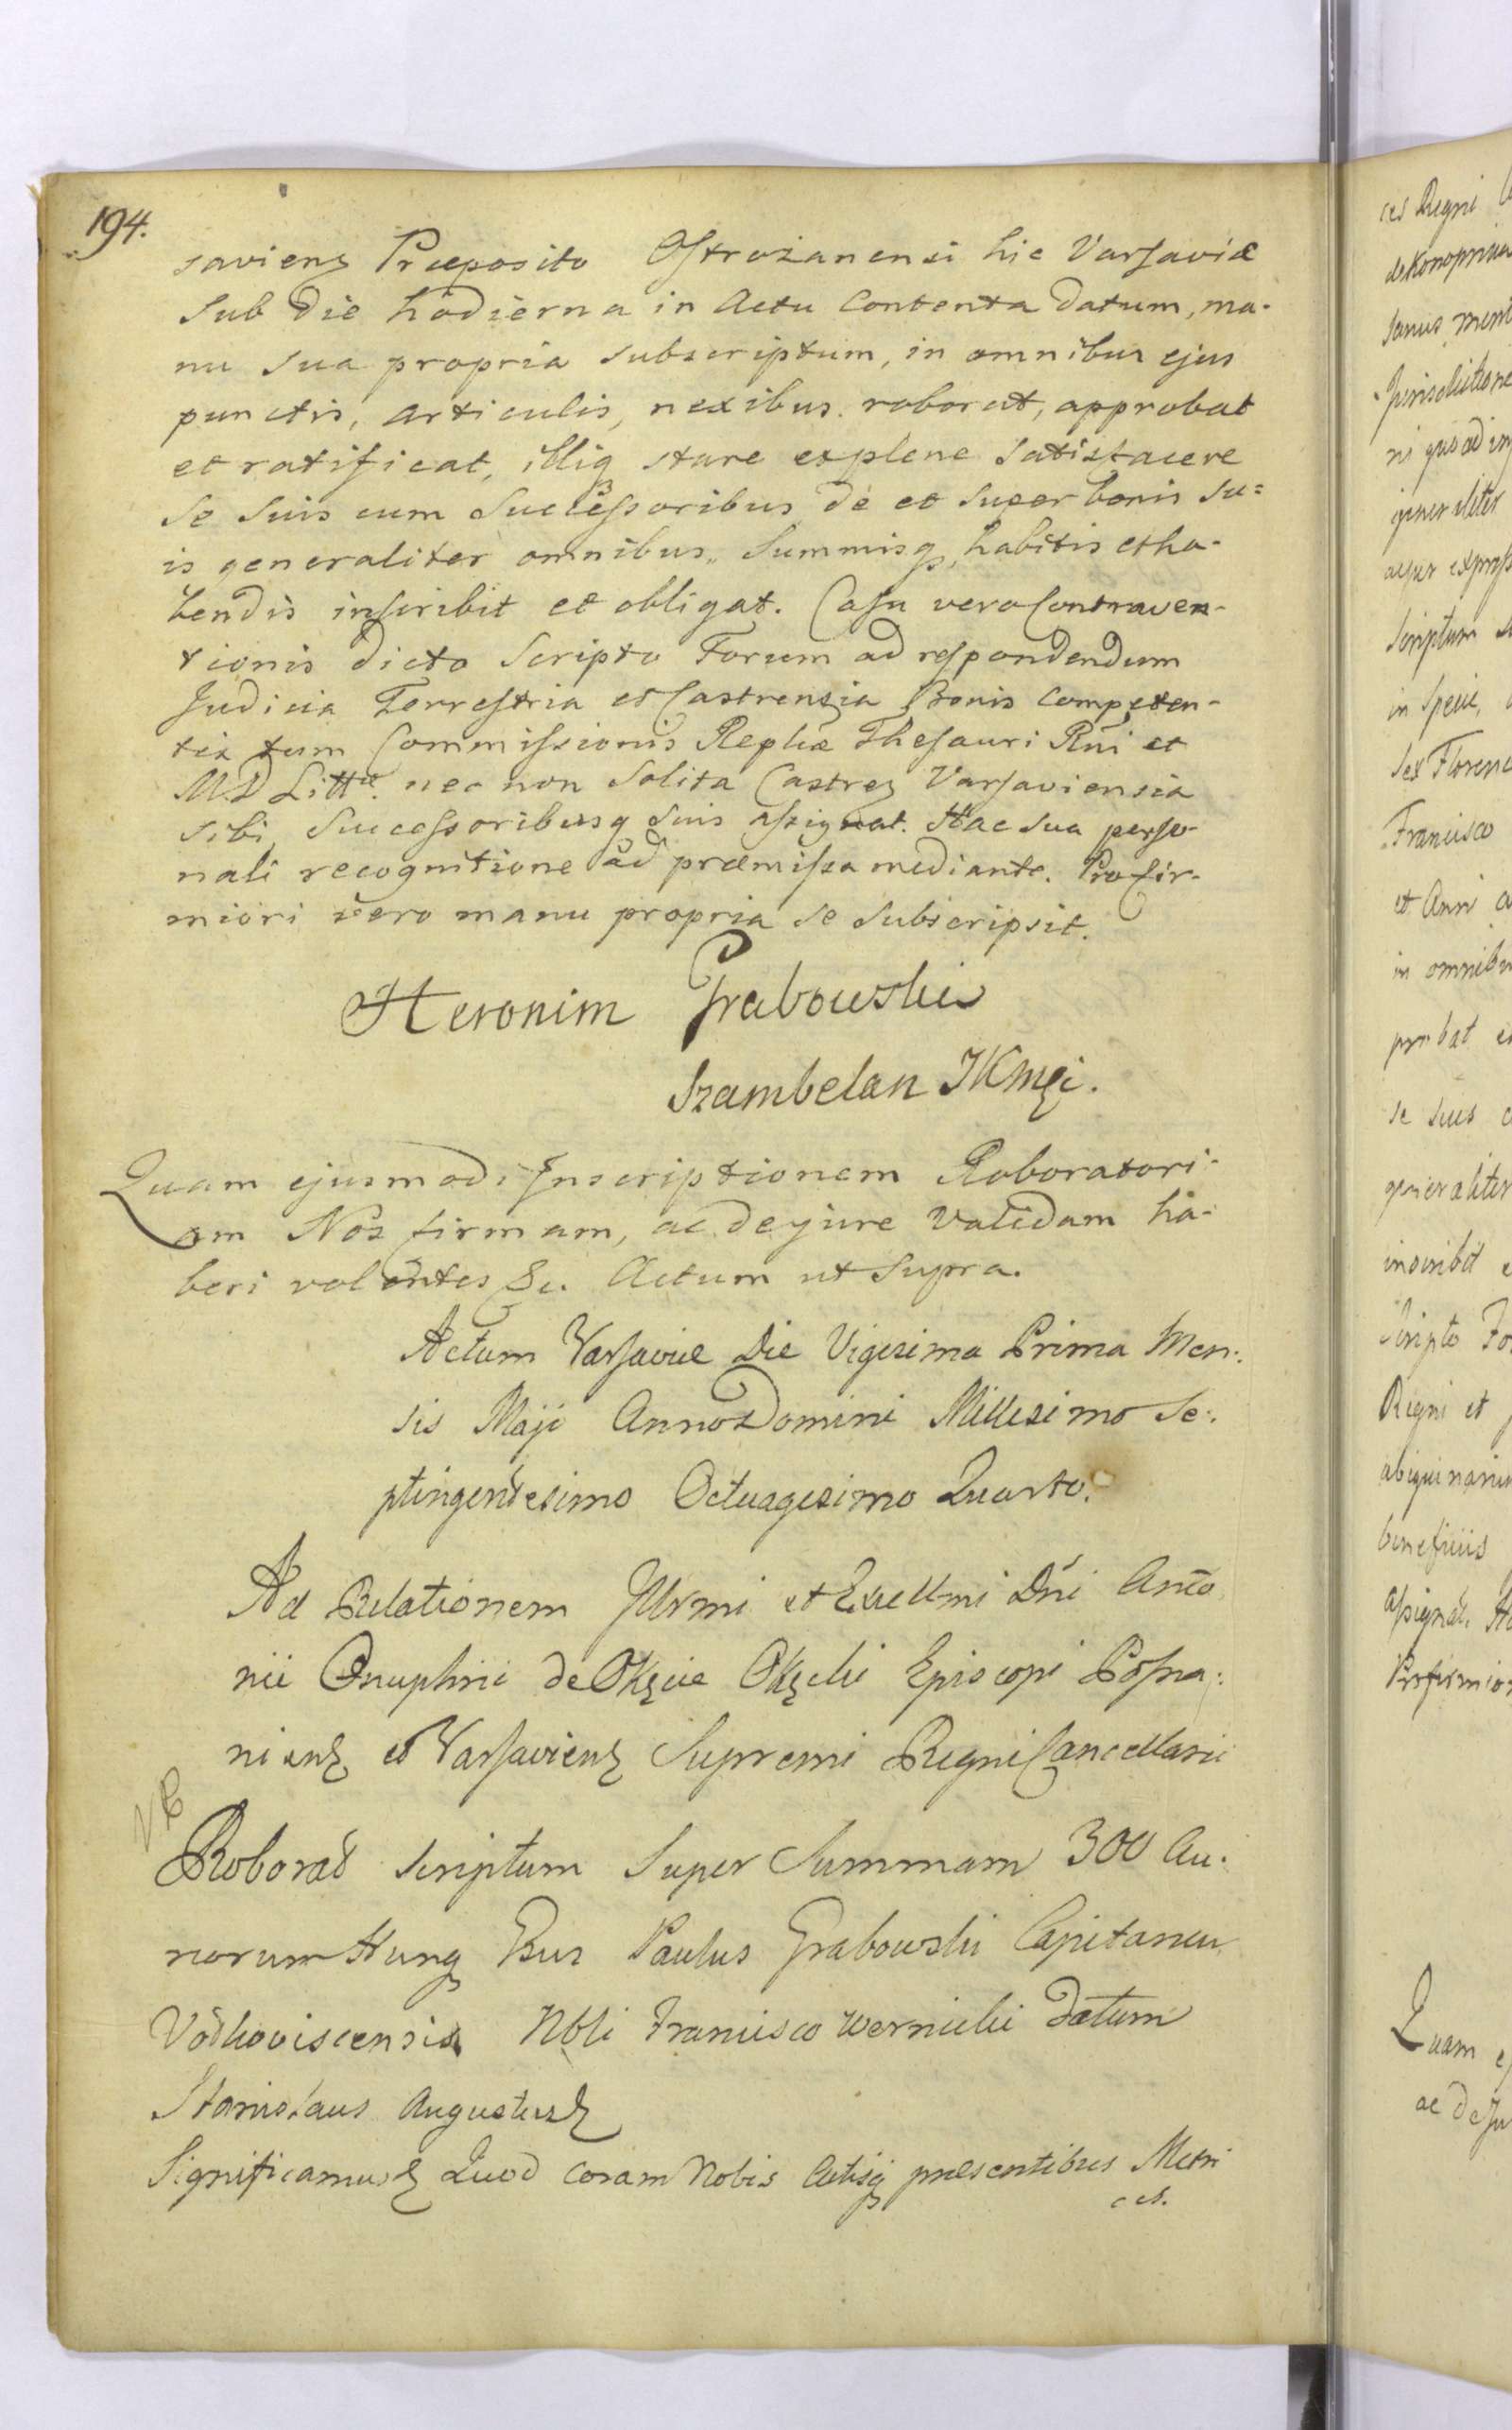 194.
saviens Præposito Ostrożanensi hic Varsaviæ
sub die hodierna in Actu Contenta datum, ma-
nu sua propria subscriptum, in omnibus ejus
punctis, articulis, nexibus roborat, approbat
et ratificat, illiq stare explene satisfacere
se suis cum Successoribus de et super bonis su=
is generaliter omnibus, Summisq, habitis et ha-
bendis inscribit et obligat. Casu vero Contraven-
tionis dicto Scripto Forum ad respondendum
Judicia Terrestria et Castrensia Bonis Competen-
tia tum Commissionis Replicæ Thesauri Rni et
M.D Littæ. nec non Solita Castren Varsaviensia
sibi Successoribusq suis assignat. Hac sua perso-
nali recognitione ad præmissa mediante. Pro fir-
miori vero manu propria se subscripsit.
Heronim Grabowski
Szambelan JKMci.
Quam ejusmodi Inscriptionem Roboratori-
am Nos firmam, ac de jure validam ha-
beri volentes &c. Actum ut supra.
Actum Varsaviæ Die Vigesima Prima Men:
sis Maji Anno Domini Millesimo Se:
ptingentesimo Octuagesimo Quarto.
Ad Relationem Illrmi et Excellmi Dni Anto
nii Onuphrii de Okęcie Okęcki Episcopi Posna:
niens et Varsaviens Supremi Regni Cancellarii
VR
Roborat scriptum super Summam 300 Au-
reorum Hung Gsus Paulus Grabowski Capitaneu
Vołkoviscensis Nbli Francisco Wernicki datum
Stanislaus Augustus &
Significamus & Quod coram Nobis Actisq præsentibus Metri
ces.
ces Regni
de Konopnica
sanus ment
Jurisdictione
ni quoad in
generaliter
acque express
Scriptum
in specie,
sex Floren
Francisco
et Anni a
in omnibu
probat e
se suis c
generaliter
inscribit e
Scripto Fo
Regni et
beneficiis
Assignat. Ha
Pro firmior
Quam ej
ac de Ju